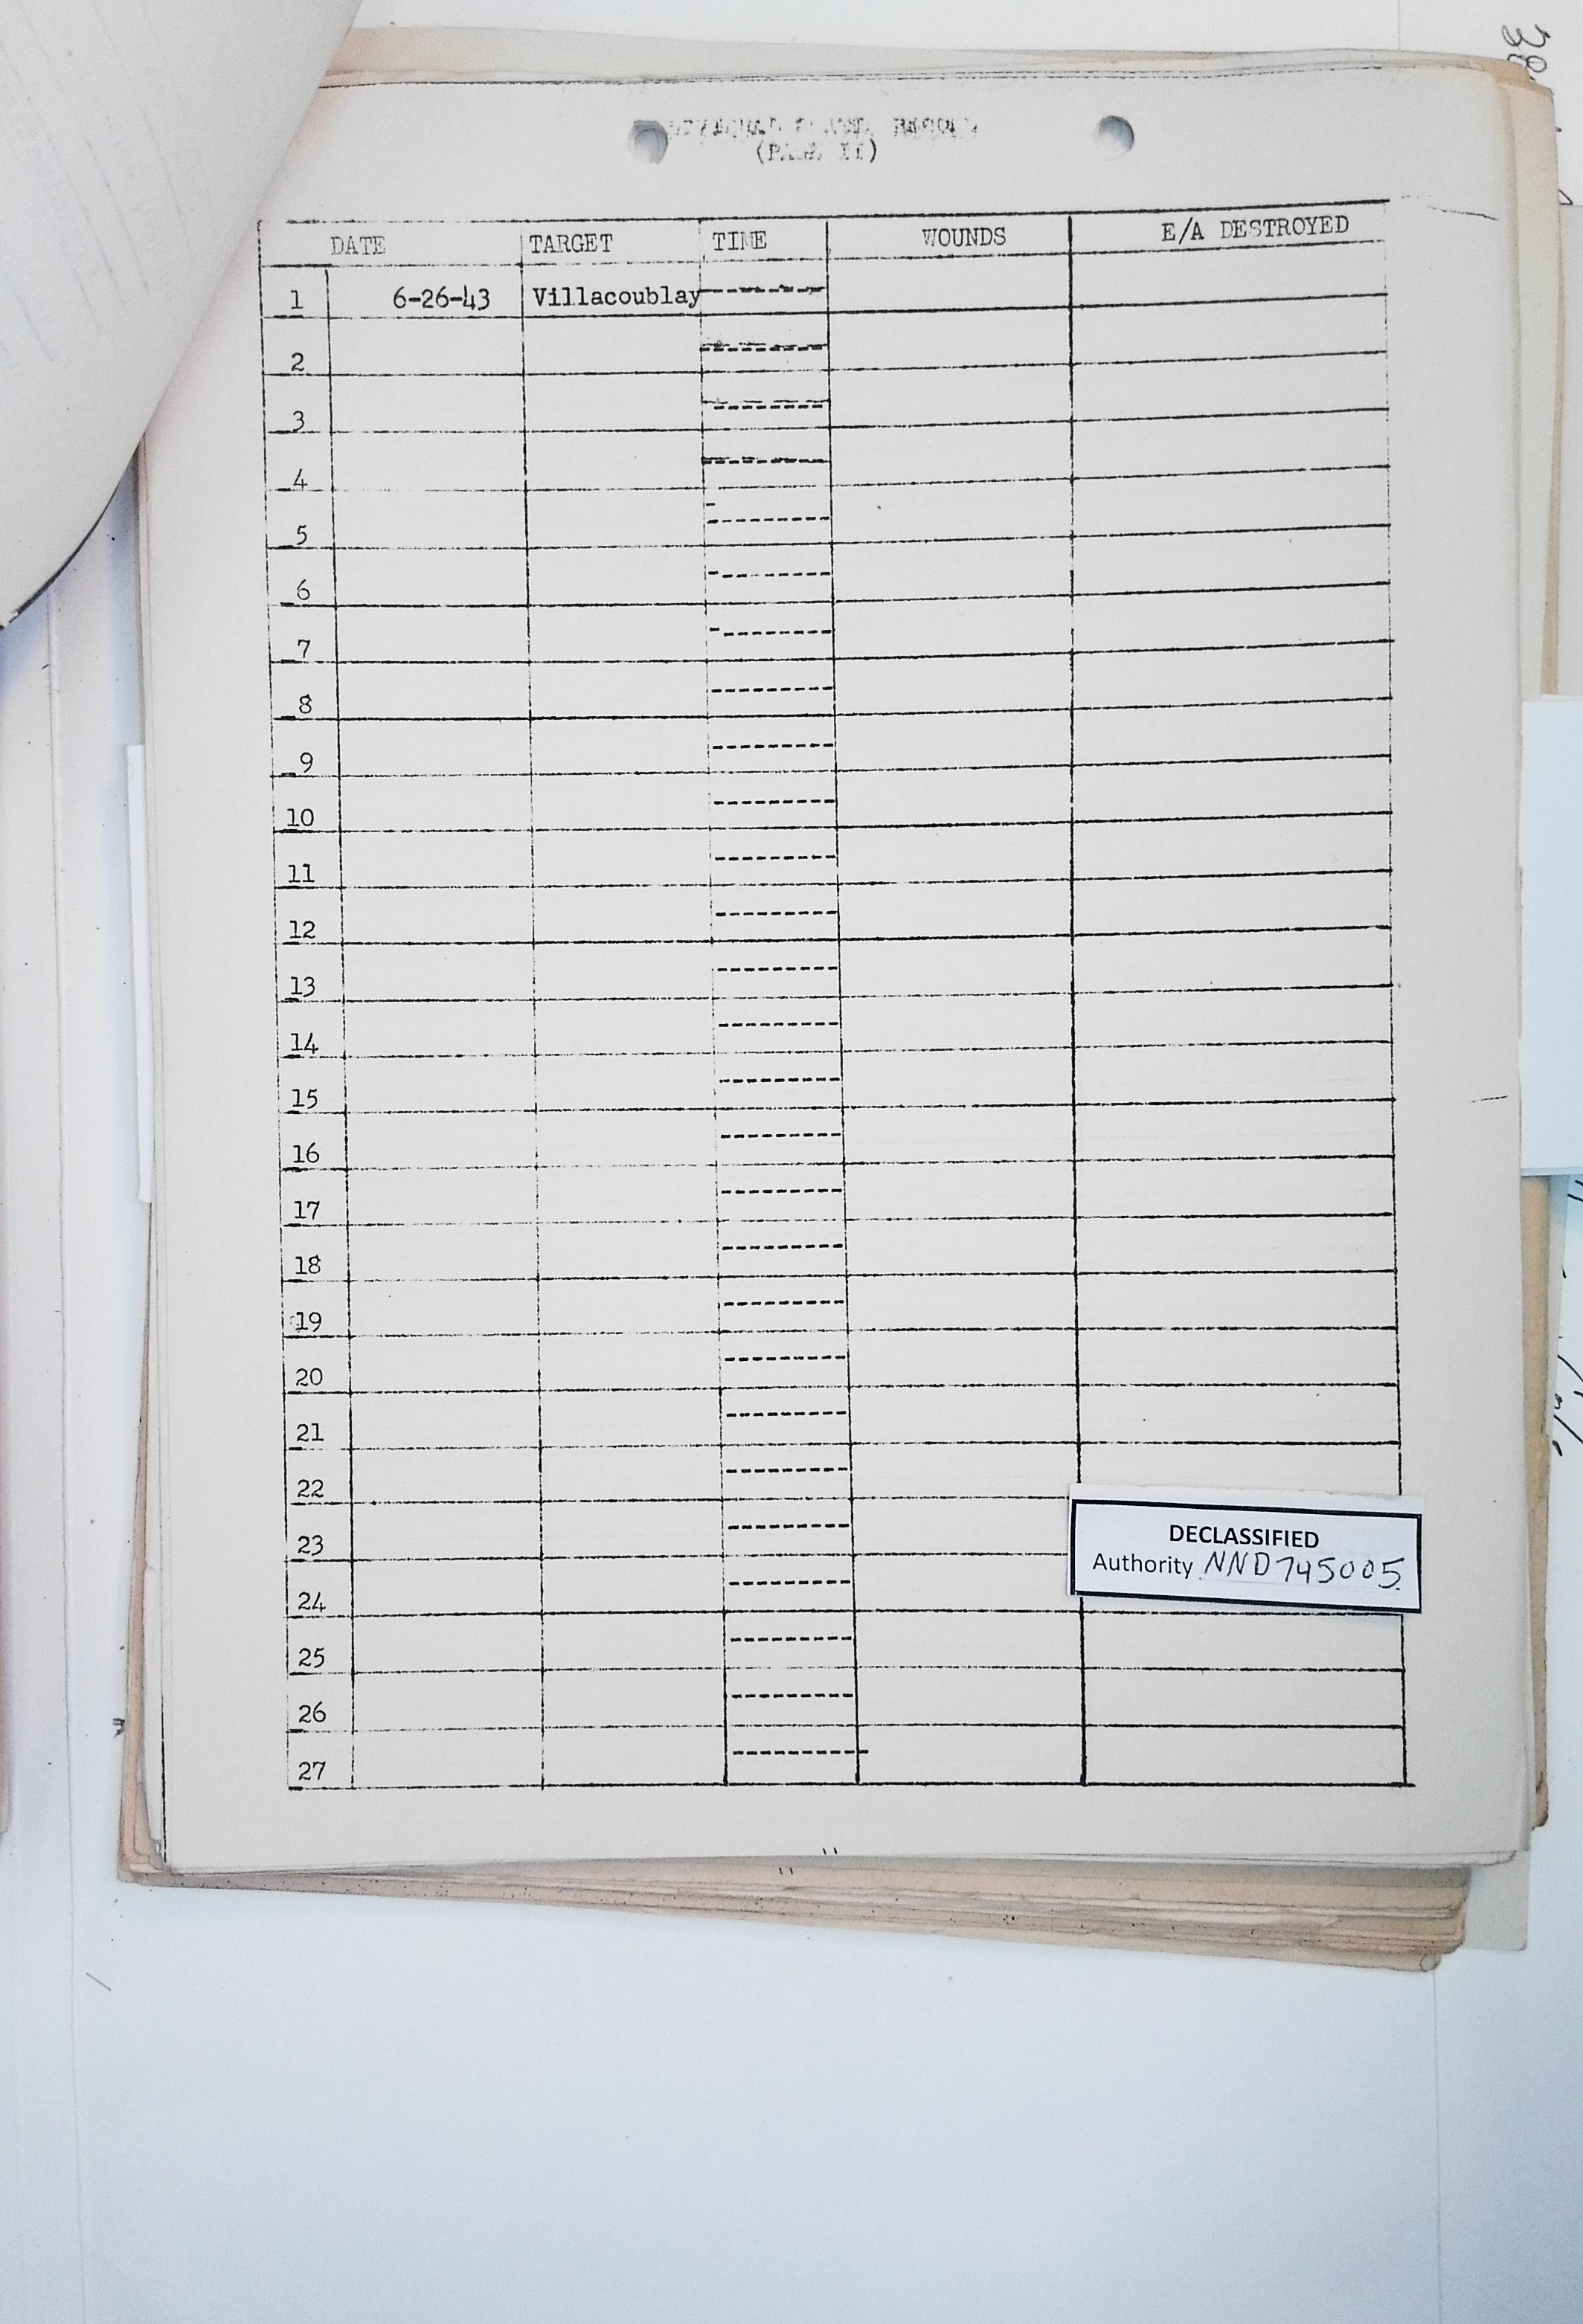 (PART II)
DATE TARGET TIME WOUNDS E/A DESTROYED
1 6-26-43 Villacoublay
2
3
4
5
6
7
8
9
10
11
12
13
14
15
16
17
18
19
20
21
22
23
24
25
26
27
DECLASSIFIED
Authority NND745005